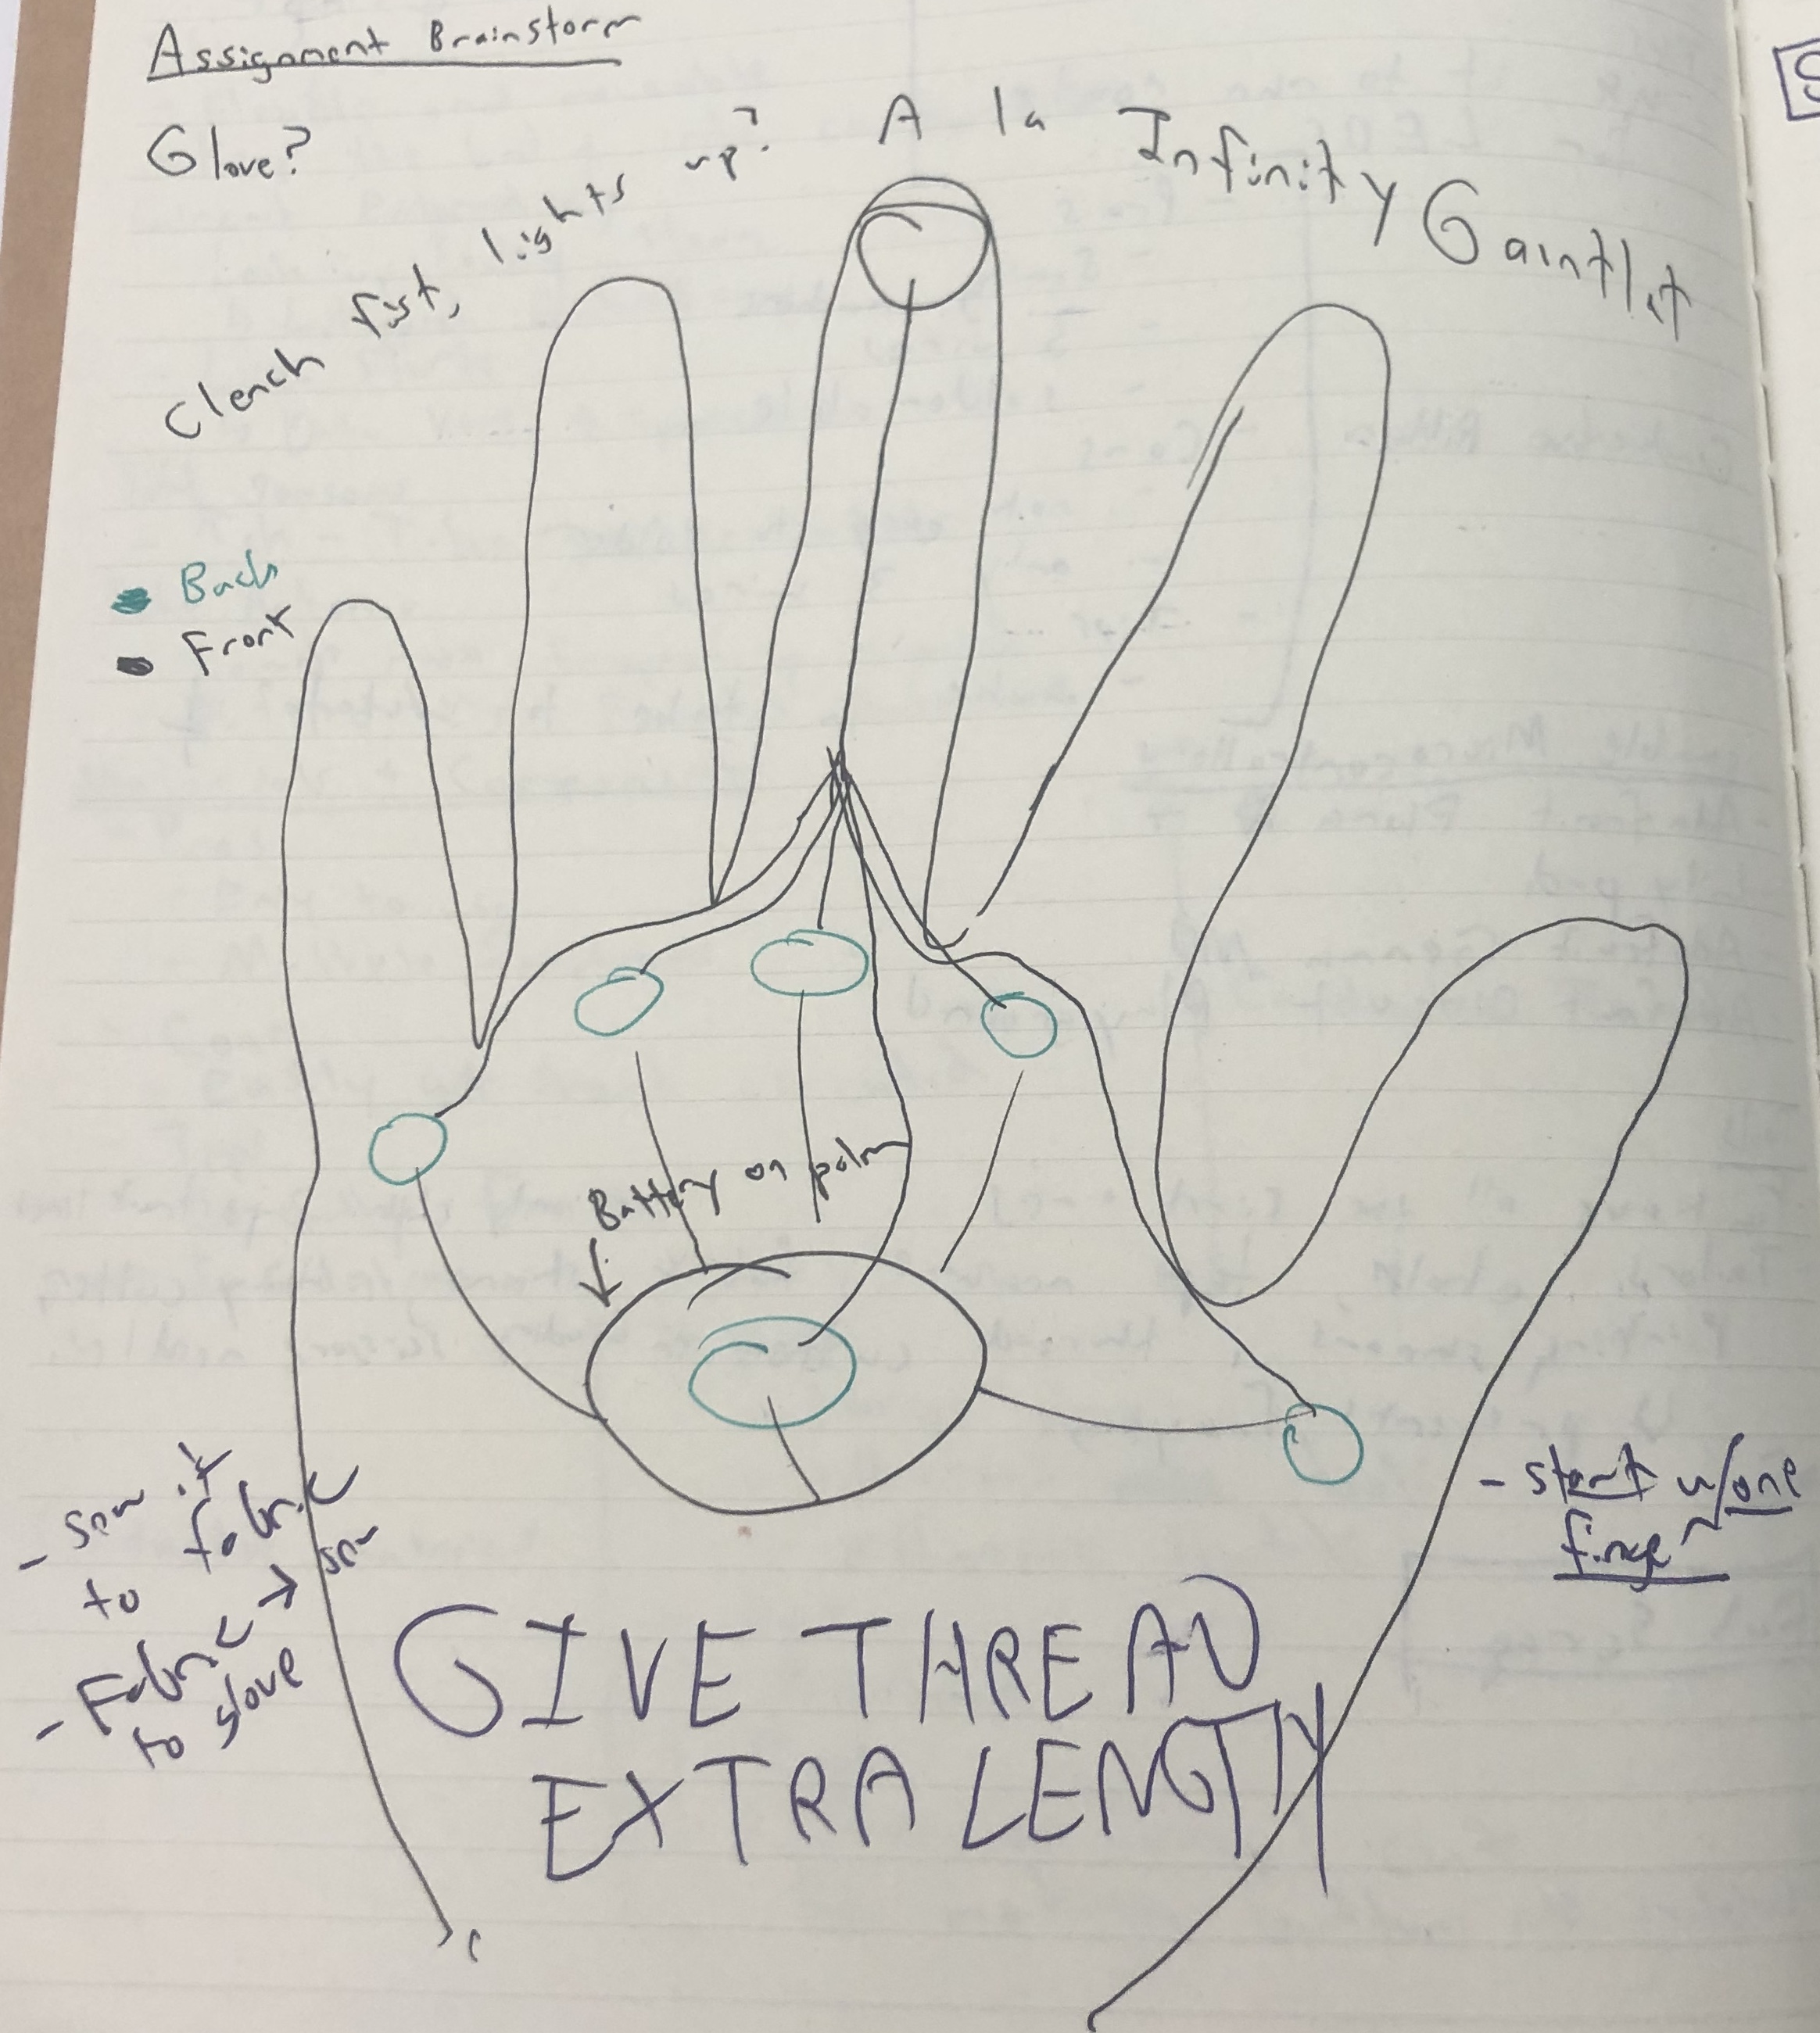 Assignment Brainstorm
Glove?
Clench fist, lights up? A la Infinity Gauntlet
Back
Front
Battery on palm
- sew it
to fabric
- Fabric → sew
to glove
- start w/one
finger
GIVE THREAD
EXTRA LENGTH